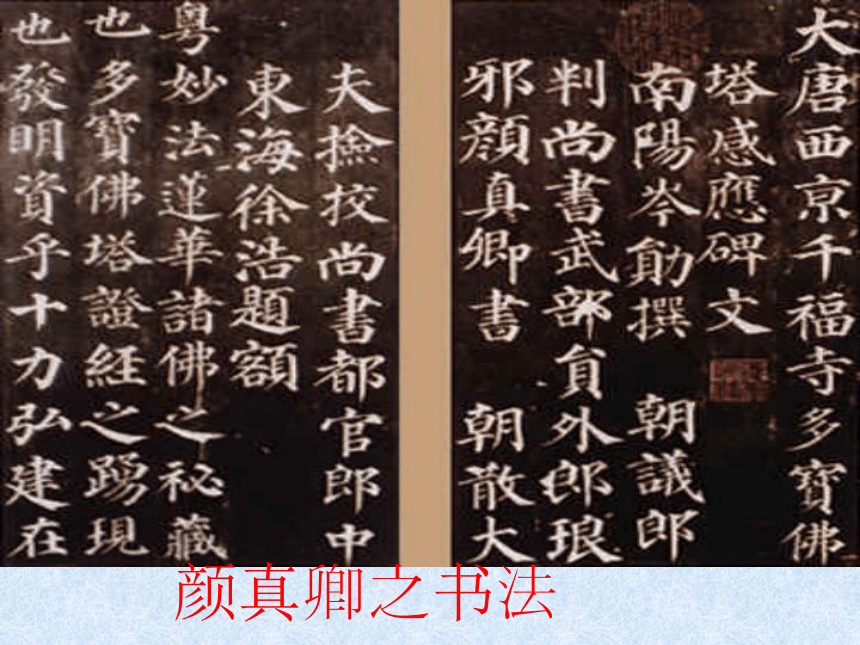 大唐西京千福寺多寶佛
塔感應碑文
南陽岑勛撰 朝議郎
判尚書武部員外郎琅
邪顏真卿書 朝散大
夫撿挍尚書都官郎中
東海徐浩題額
粵妙法蓮華諸佛之祕藏
也多寶佛塔證經之踴現
也發明資乎十力弘建在
颜真卿之书法